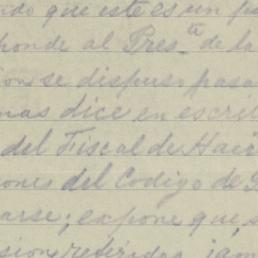 ndo que este es un
ponde al Pres.te de la
on se dispuso pasa
mas dice en escri
del Fiscal de Hac
iones del Codigo de
arse; expone que, s
sion referidas